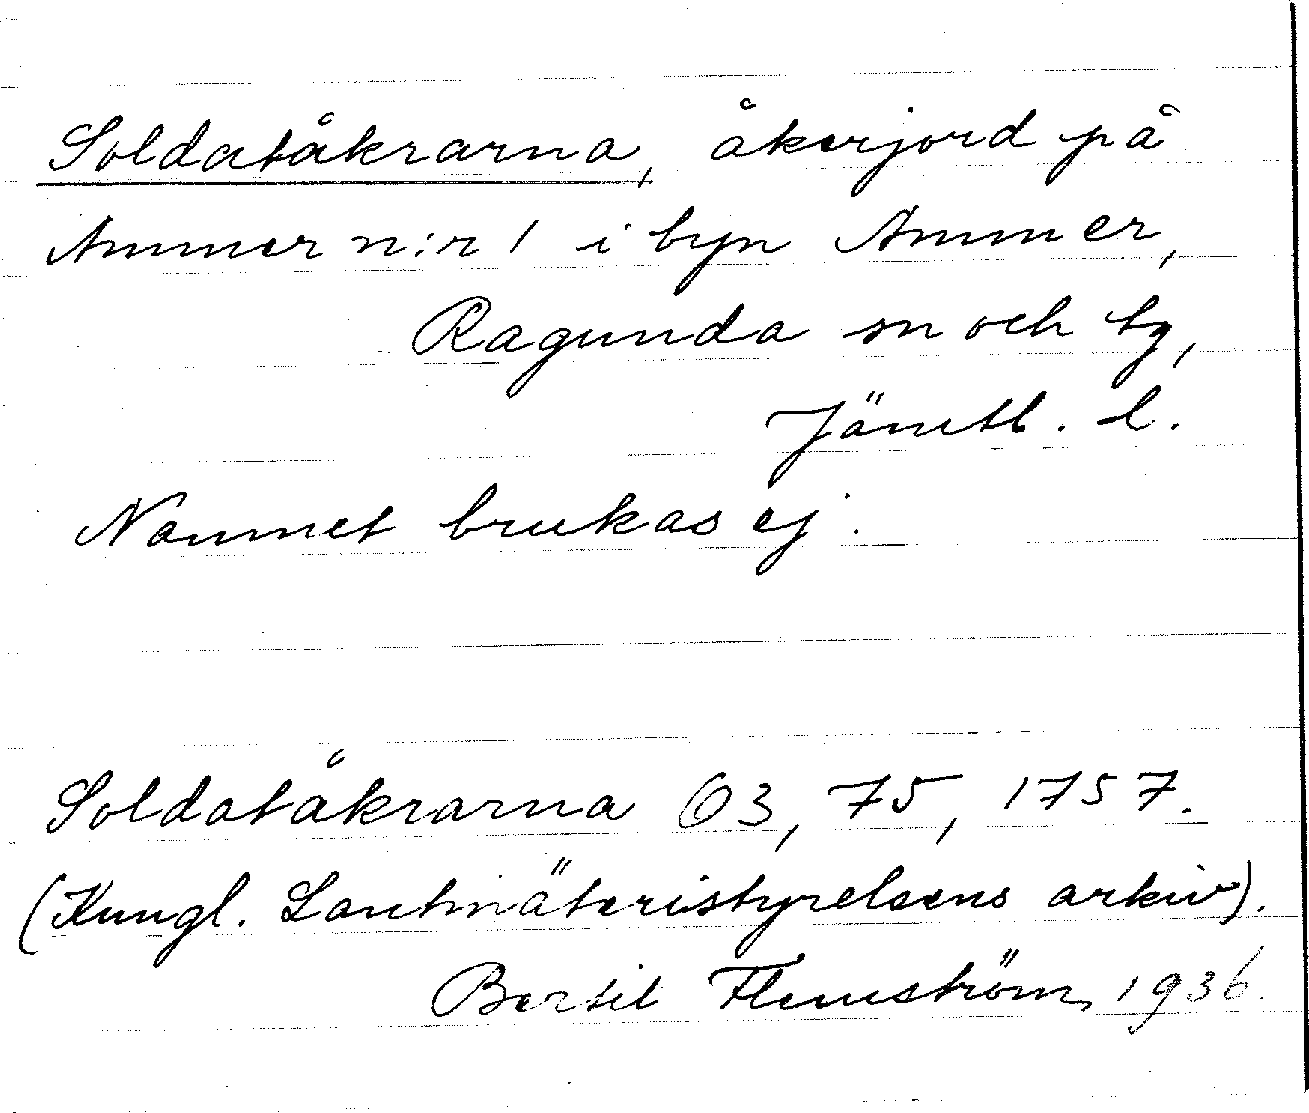 Soldatåkrarna, åkerjord på
Ammer n:r 1 i byn Ammer,
Ragunda sn och tg,
Jämtl. l.
Namnet brukas ej.
Soldatåkrarna 63, 75, 1757.
(Kungl. Lantmäteristyrelsens arkiv).
Bertil Flemström, 1936.